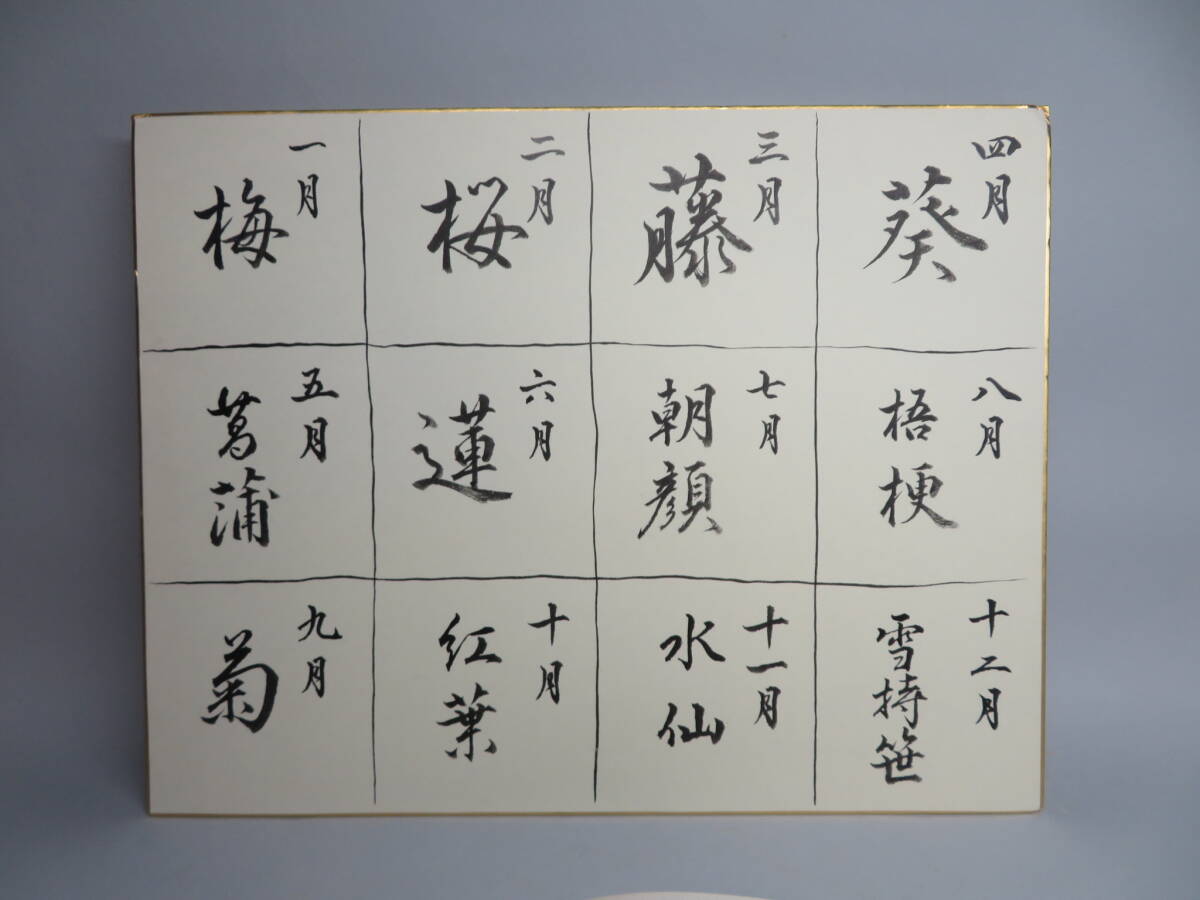 一月
梅
二月
桜
三月
藤
四月
葵
五月
菖蒲
六月
蓮
七月
朝顔
八月
梧梗
九月
菊
十月
紅葉
十一月
水仙
十二月
雪持笹